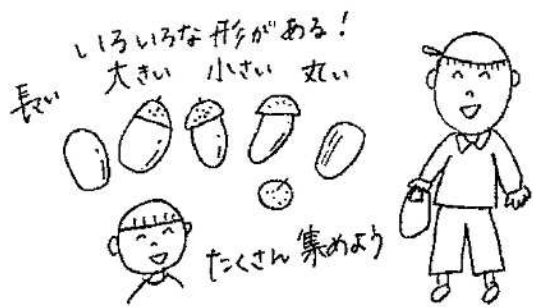 いろいろな形がある!
長い 大きい 小さい 丸い
たくさん集めよう